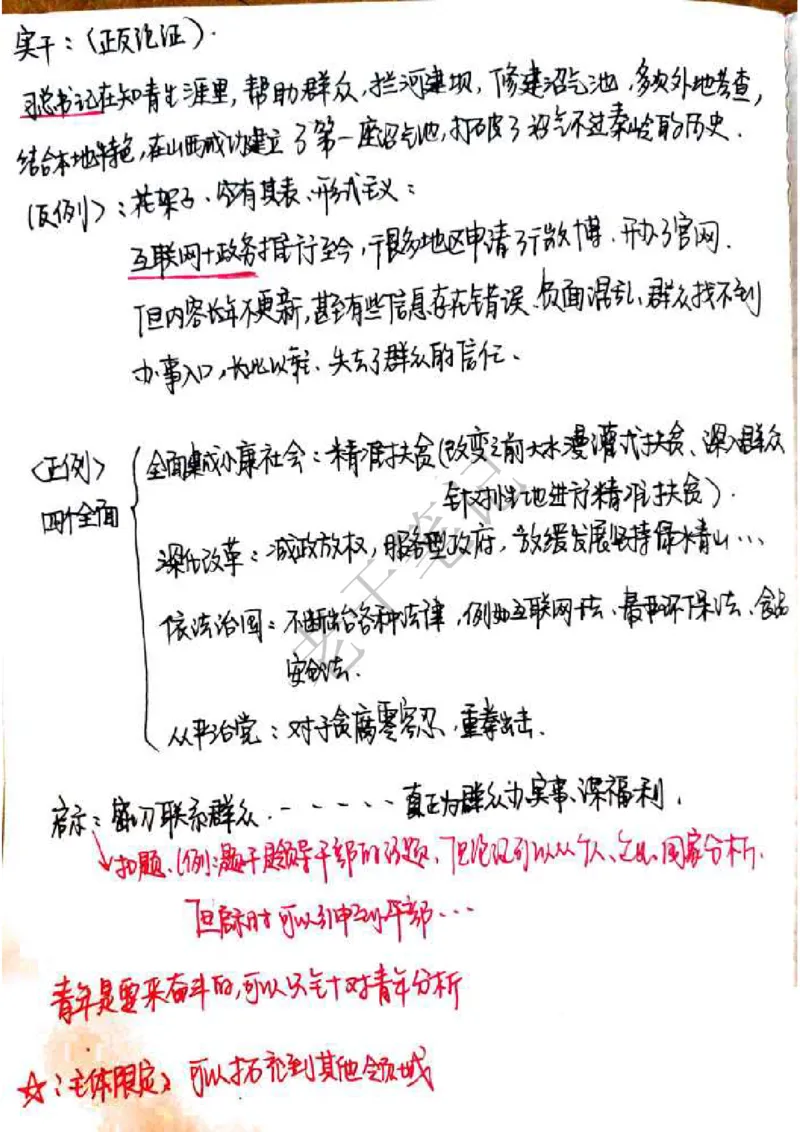 实干：（正反论证）.
习总书记在知青生涯里，帮助群众，拦河建坝，修建沼气池，多次外地考查，
结合本地特色，在山西成功建立了第一座沼气池，打破了沼气不过秦岭的历史.
（反例）：花架子、空有其表、形式主义：
互联网+政务推行至今，很多地区申请了微博、开办了官网.
但内容长年不更新，甚至有些信息存在错误、负面混乱、群众找不到
办事入口，长此以往、失去了群众的信任、
〈正例〉
四个全面
全面建成小康社会：精准扶贫（改变之前大水漫灌式扶贫、深入群众
针对性地进行精准扶贫）.
深化改革：减政放权，服务型政府，放缓发展坚持绿水青山…
依法治国：不断出台各种法律，例如互联网法、最严环保法、食品
安全法.
从严治党：对于贪腐零容忍，重拳出击.
启示：密切联系群众. ------ 真正为群众办实事、谋福利.
扣题.（例：题干是领导干部的话题，但论证可以从个人、企业、国家分析.
但启示时可以引申到干部…
青年是要来奋斗的，可以只针对青年分析
☆：主体限定〉可以拓充到其他领域
老干笔记